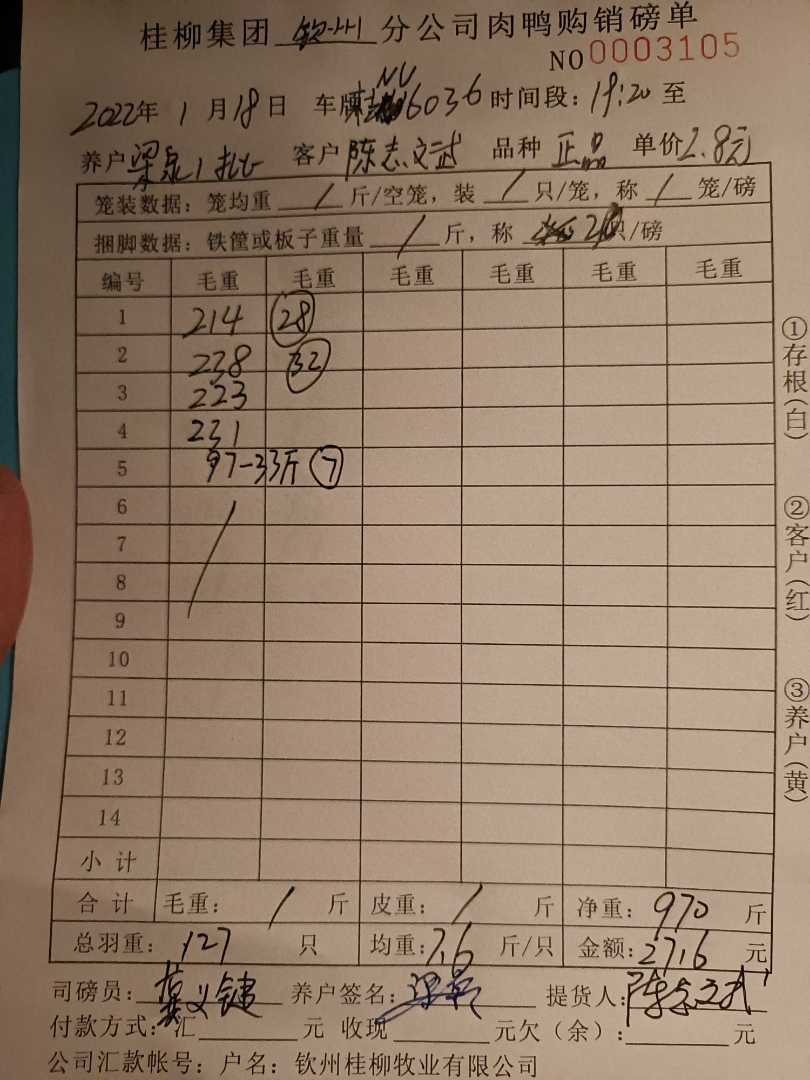 桂柳集团 钦州 分公司肉鸭购销磅单
NO 0003105
2022年 1 月 18 日 车牌 NU 6036 时间段: 19:20 至
养户 梁 1批 客户 陈志文 品种 正品 单价 2.8元
笼装数据: 笼均重 / 斤/空笼, 装 / 只/笼, 称 / 笼/磅
捆脚数据: 铁筐或板子重量 / 斤, 称 只/磅
编号 毛重 毛重 毛重 毛重 毛重 毛重
1 214 28
2 238 32
3 223
4 231
5 97-33斤 7
6
7
8
9
10
11
12
13
14
小计
合计 毛重: / 斤 皮重: / 斤 净重: 970 斤
总羽重: 127 只 均重: 7.6 斤/只 金额: 2716 元
司磅员: 养户签名: 梁 提货人: 陈志文
付款方式: 汇 元 收现 元欠（余）: 元
公司汇款帐号: 户名: 钦州桂柳牧业有限公司
①存根(白)
②客户(红)
③养户(黄)